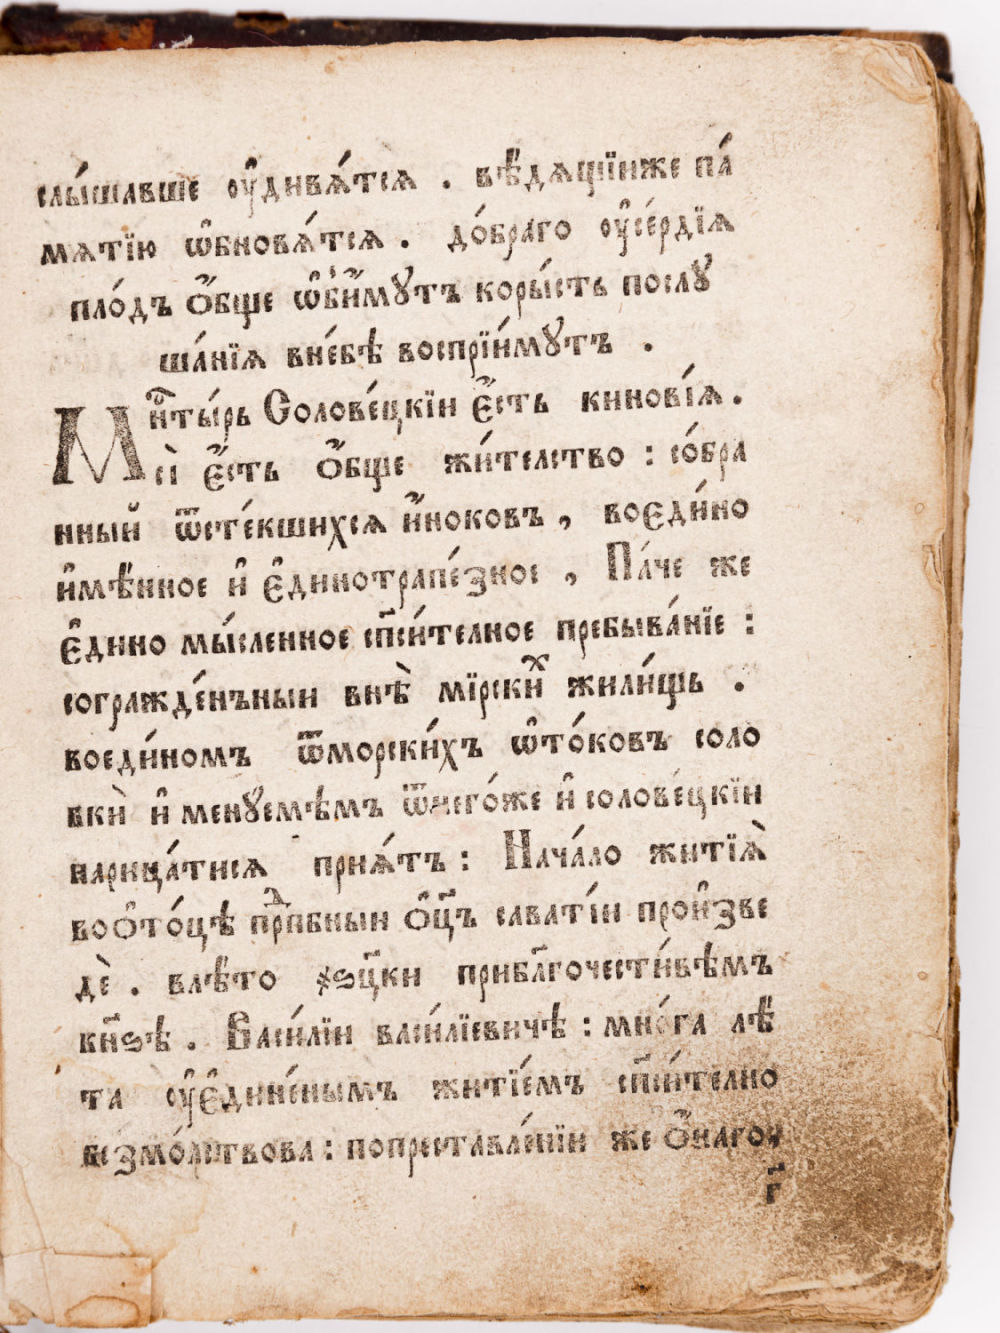 слы́шавше ᲂу҆дивѧ́тсѧ . вѣ́дѧщїиже па́
мѧтїю ѡ҆бновѧ́тсѧ . до́браго ᲂу҆се́рдїѧ
пло́дъ ѻ҆́бще ѡ҆б̾и́мꙋтъ коры́сть послꙋ
ша́нїѧ вне́бѣ воспрїи́мꙋтъ .
Мн҃ты́рь Солове́цкїи є҆́сть кинові́ѧ .
сѝ є҆́сть ѻ҆́бще жи́телство : со́бра
нный ѿсте́кшихсѧ и҆́ноковъ , воєди́но
и҆мѣ́нное и҆ є҆динотрапе́зное , Па́че же
є҆дино мы́сленное сп҃си́телное пребыва́нїе :
согражде́нъныи внѣ̀ мїрски́хъ жили́щь .
воеди́номъ ѿморски́хъ ѡ҆то́ковъ соло
вкѝ и҆ менꙋемѣмъ ѿнего́же и҆ солове́цкїи
нарица́тисѧ прїѧ́тъ : Нача́ло житїѧ̀
воѻ҆то́цѣ прⷣпбныи ѻ҆ц҃ъ саваті́и прои҆зве
дѐ . влѣ́то ҂ѕ҃цки прибл҃гочести́вѣмъ
кн҃ѕѣ . Васи́лїи васи́лїевичѣ : мно́га лѣ́
та ᲂу҆є҆дине́нымъ житїе́мъ сп҃си́телно
безмо́лвствова : попреставле́нїи же ѻ҆наго ,
г҃